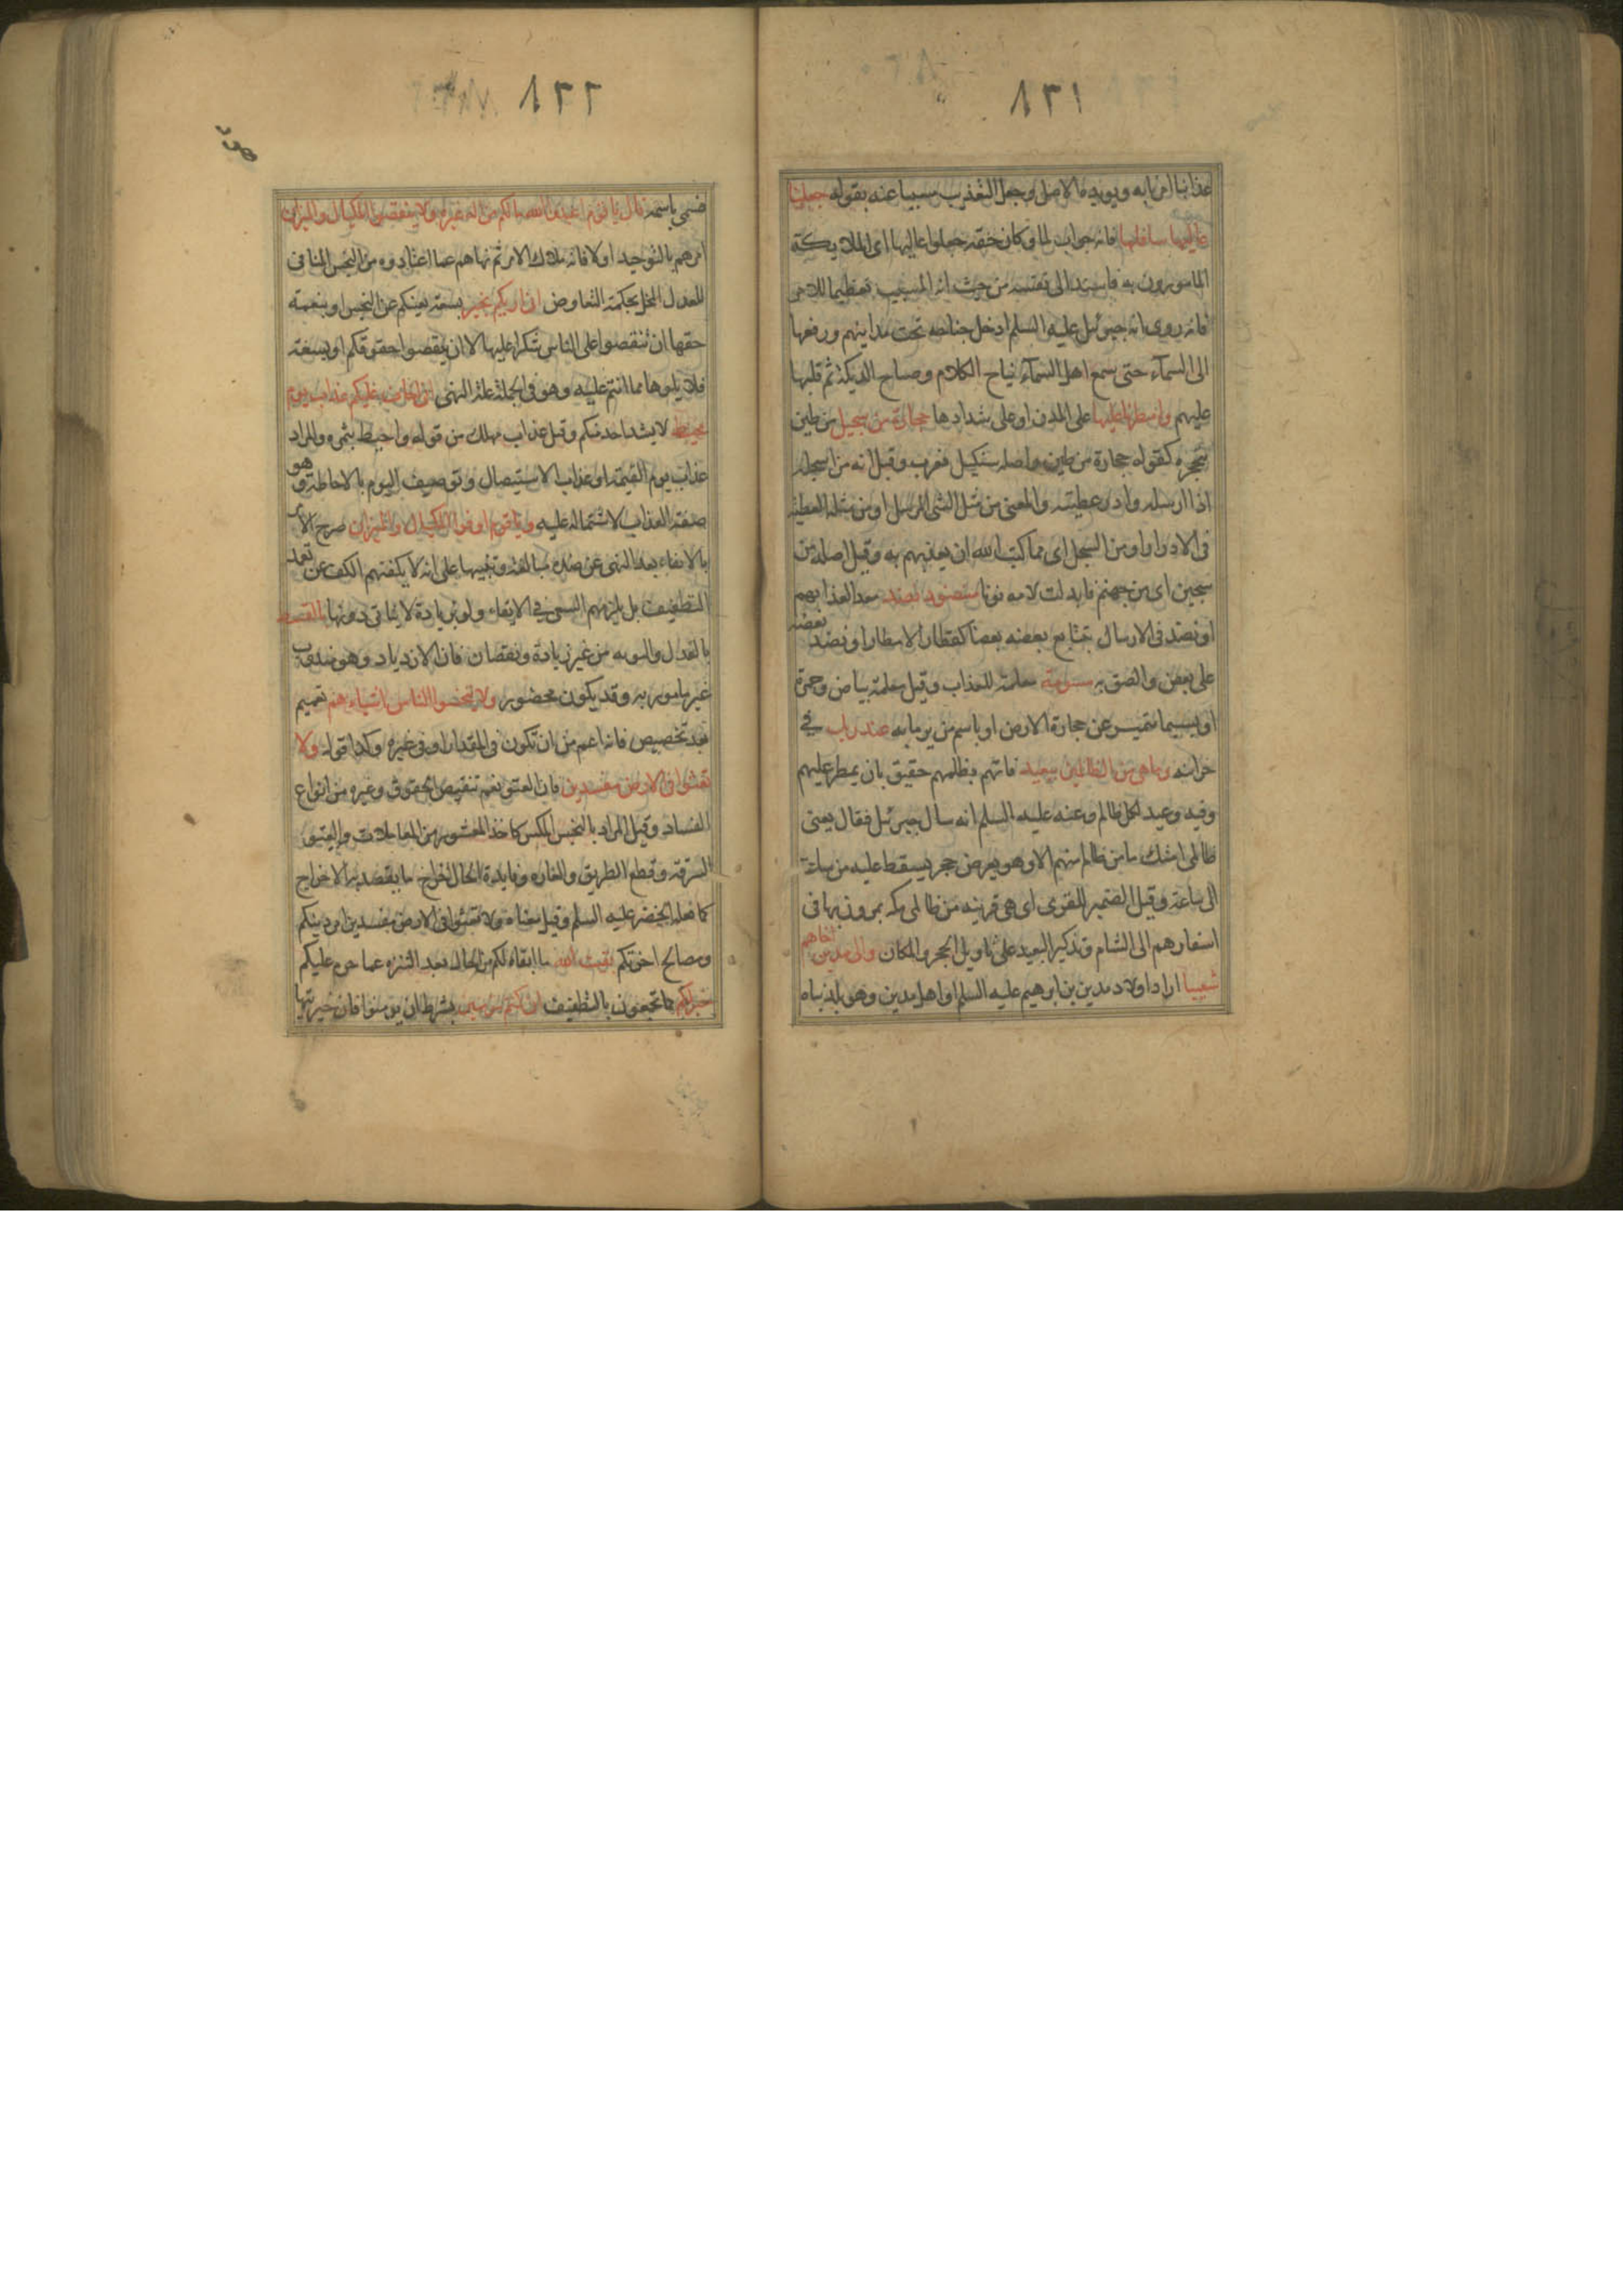 ٨٢١
عذابنا امرنا به ويويده الاصل وجعل التعذيب سببا عنه بقوله جعلنا
عاليها سافلها فانه جواب لما وكان حقه جعلوا عاليها اى الملايكة
المامورون به فاسند الى نفسه من حيث انه المسبب تعظيما للامر
فانه روى انه جبرئل عليه السلم ادخل جناحه تحت مداينهم ورفعها
الى السمآء حتى سمع اهل السمآء نباح الكلاب وصياح الديكة ثم قلبها
عليهم وامطرنا عليها على المدن او على شدادها حجارة من سجيل من طين
متحجره كقوله حجارة من طين واصله سنكيل فعرب وقيل انه من اسجله
اذا ارسله وادر عطيته والمعنى من مثل الشى المرسل او من مثل العطية
فى الادرار او من السجل اى مما كتب الله ان يعذبهم به وقيل اصله من
سجين اى من جهنم فابدلت لامه نونا منضود نضد معد العذابهم
او نضد فى الارسال بتتابع بعضه بعضا كقطار الامطار او نضد بعضه
على بعض والصق به مسومة معلمة للعذاب وقيل معلمة ببياض وحمرة
او بسيما تتميز عن حجارة الارض او باسم من يرما به عند ربك فى
خزاينه وما هى من الظالمين ببعيد فانهم بظلمهم حقيق بان يمطر عليهم
وفيه وعيد لكل ظالم وعنه عليه السلم انه سال جبرئل فقال يعنى
ظالمى امتك ما من ظالم منهم الا وهو بعرض حجر يسقط عليه من ساعة
الى ساعة وقيل الضمير للقرى اى هى قريبه من ظالمى مكه يمرون بها فى
اسفارهم الى الشام وتذكير البعيد على تاويل الحجر والمكان والى مدين اخاهم
شعيبا اراد اولاد مدين بن ابرهيم عليه السلم او اهل مدين وهو بلد بناه
٨٢٢
فسمى باسمه قال يا قوم اعبدوا الله ما لكم من اله غيره ولا تنقصوا المكيال والميزان
امرهم بالتوحيد اولا فانه ملاك الامر ثم نهاهم عما اعتادوه من البخس المنافى
للعدل المخل بحكمة التعاوض انى اريكم بخير بسعة يعنيكم عن البخس او بنعمته
حقها ان تنقصوا على الناس شكرا عليها لا ان ينقصوا حقوقكم او بسعة
فلا يلوها مما انتم عليه وهو فى الجملة علة النهى وانى اخاف عليكم عذاب يوم
محيط لا يشد احد منكم وقيل عذاب مهلك من قوله واحيط بثمره والمراد
عذاب يوم القيمة او عذاب الاستيصال وتوصيف اليوم بالاحاطة وهو
صفة العذاب لاشتماله عليه ويا قوم اوفوا المكيال والميزان صرح الامر
بالايفاء بعد النهى عن ضده مبالغة وتنبيها على انه لا يكفنهم الكف عن تعمد
التطفيف بل يلزمهم السعى فى الايفاء ولو بزيادة لا يتاتى دونها بالقسط
بالعدل والسويه من غير زيادة ونقصان فان الازدياد وهو مندوب
غير مامور به وقد يكون محضورا ولا تبخسوا الناس اشياءهم تعميم
بعد تخصيص فانه اعم من ان تكون فى المقدار او فى غيره وكذا قوله ولا
تعثوا فى الارض مفسدين فان العثو يعم تنقيص الحقوق وغيره من انواع
الفساد وقيل المراد بالبخس المكس كاخذ العشور من المعاملات والعثو
السرقة وقطع الطريق والغاره وفايدة الحال اخراج ما يقصد به الاخراج
كما فعله الخضر عليه السلم وقيل معناه ولا تعثوا فى الارض مفسدين امر دينكم
ومصالح اخرتكم بقيت الله ما ابقاه لكم من الحلال بعد التنزه عما حرم عليكم
خير لكم مما تجمعون بالتطفيف ان كنتم مومنين بشرط ان يومنوا فان خيرتيها